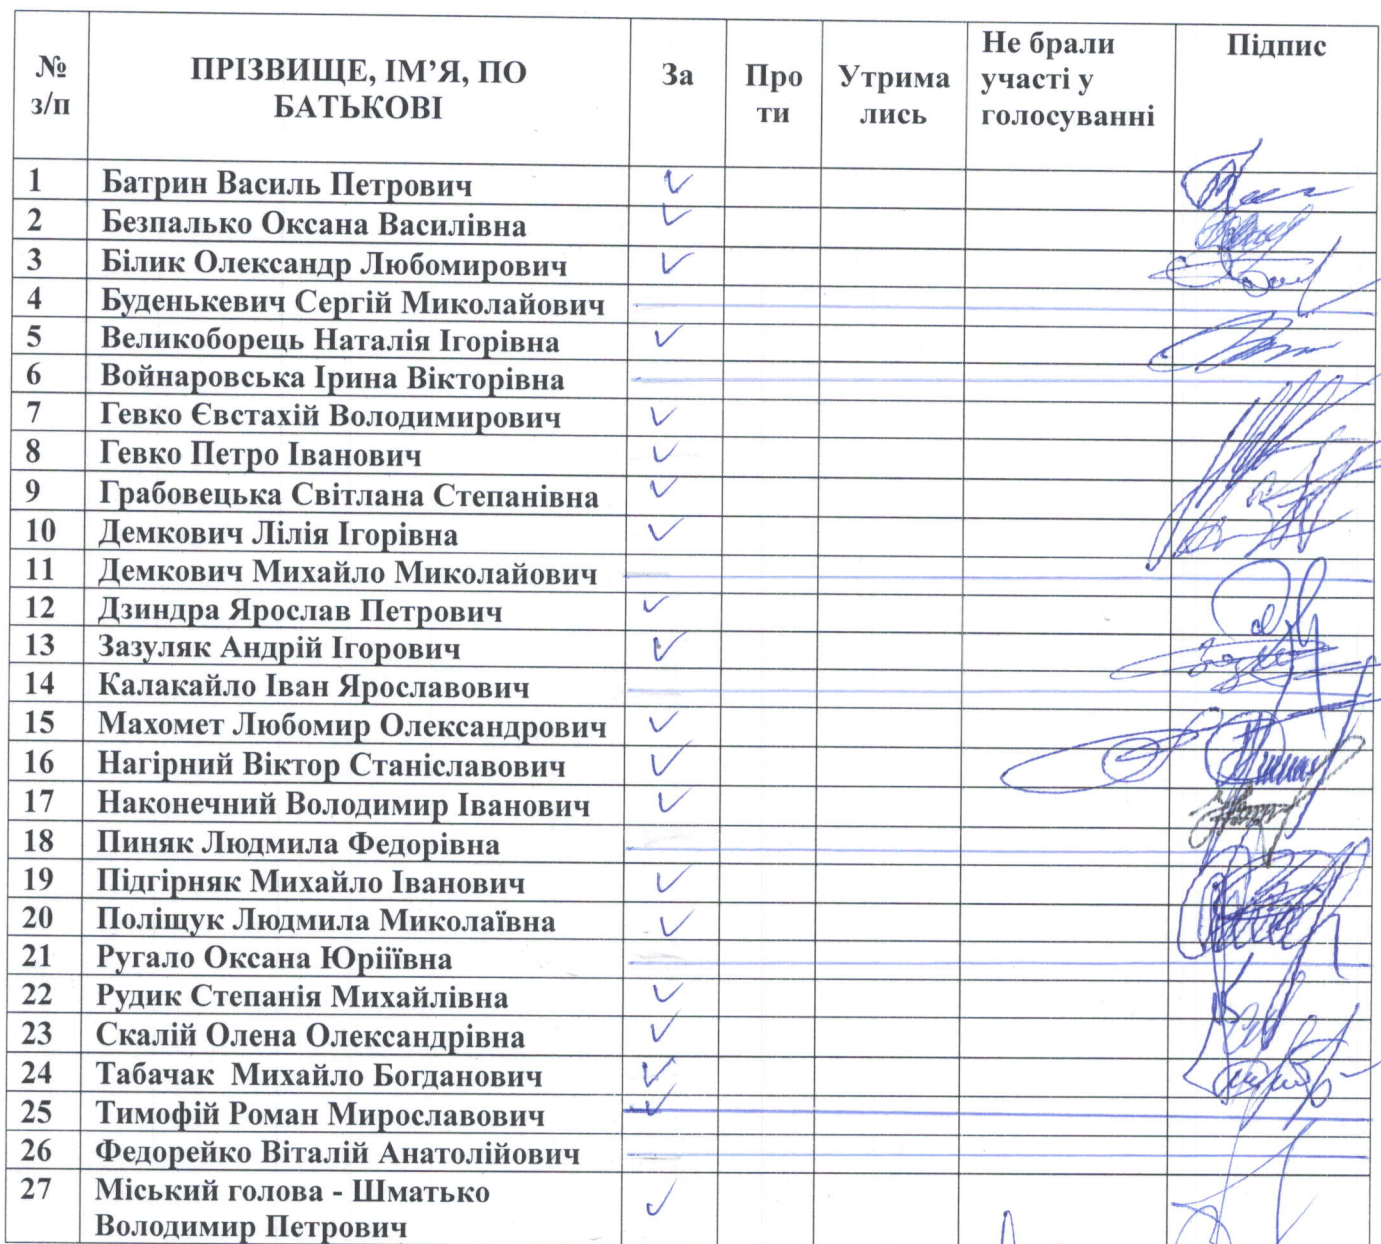 № з/п ПРІЗВИЩЕ, ІМ’Я, ПО БАТЬКОВІ За Про ти Утрима лись Не брали участі у голосуванні Підпис
1 Батрин Василь Петрович ✓
2 Безпалько Оксана Василівна ✓
3 Білик Олександр Любомирович ✓
4 Буденькевич Сергій Миколайович
5 Великоборець Наталія Ігорівна ✓
6 Войнаровська Ірина Вікторівна
7 Гевко Євстахій Володимирович ✓
8 Гевко Петро Іванович ✓
9 Грабовецька Світлана Степанівна ✓
10 Демкович Лілія Ігорівна ✓
11 Демкович Михайло Миколайович
12 Дзиндра Ярослав Петрович ✓
13 Зазуляк Андрій Ігорович ✓
14 Калакайло Іван Ярославович
15 Махомет Любомир Олександрович ✓
16 Нагірний Віктор Станіславович ✓
17 Наконечний Володимир Іванович ✓
18 Пиняк Людмила Федорівна
19 Підгірняк Михайло Іванович ✓
20 Поліщук Людмила Миколаївна ✓
21 Ругало Оксана Юріїївна
22 Рудик Степанія Михайлівна ✓
23 Скалій Олена Олександрівна ✓
24 Табачак Михайло Богданович ✓
25 Тимофій Роман Мирославович ✓
26 Федорейко Віталій Анатолійович
27 Міський голова - Шматько
Володимир Петрович ✓